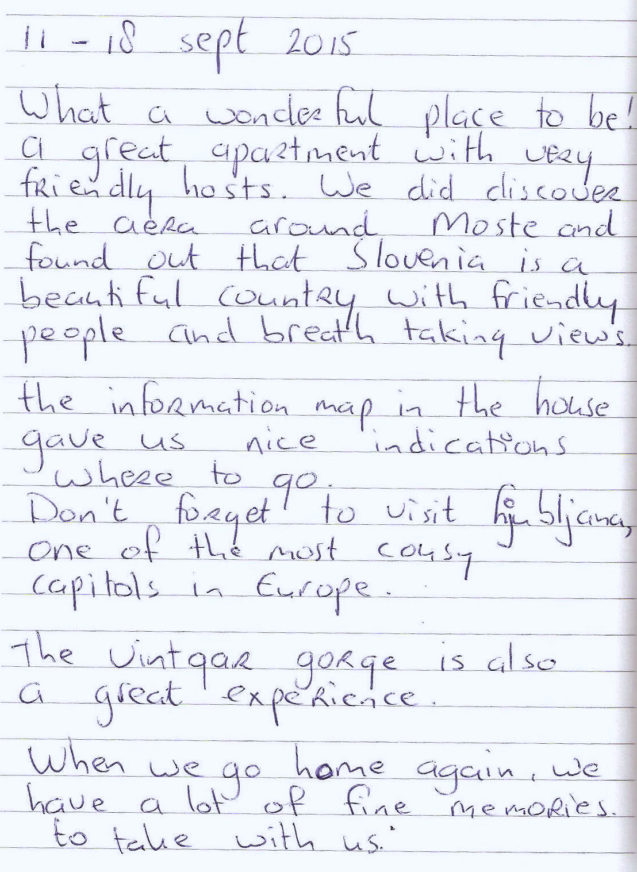 11 - 18 sept 2015
What a wonderful place to be!
a great apartment with very
friendly hosts. We did discover
the aera around Moste and
found out that Slovenia is a
beautiful country with friendly
people and breath taking views.
the information map in the house
gave us nice indications
where to go.
Don't forget to visit ljubljana,
one of the most cousy
capitols in Europe.
The Vintgar gorge is also
a great experience.
When we go home again, we
have a lot of fine memories.
to take with us.